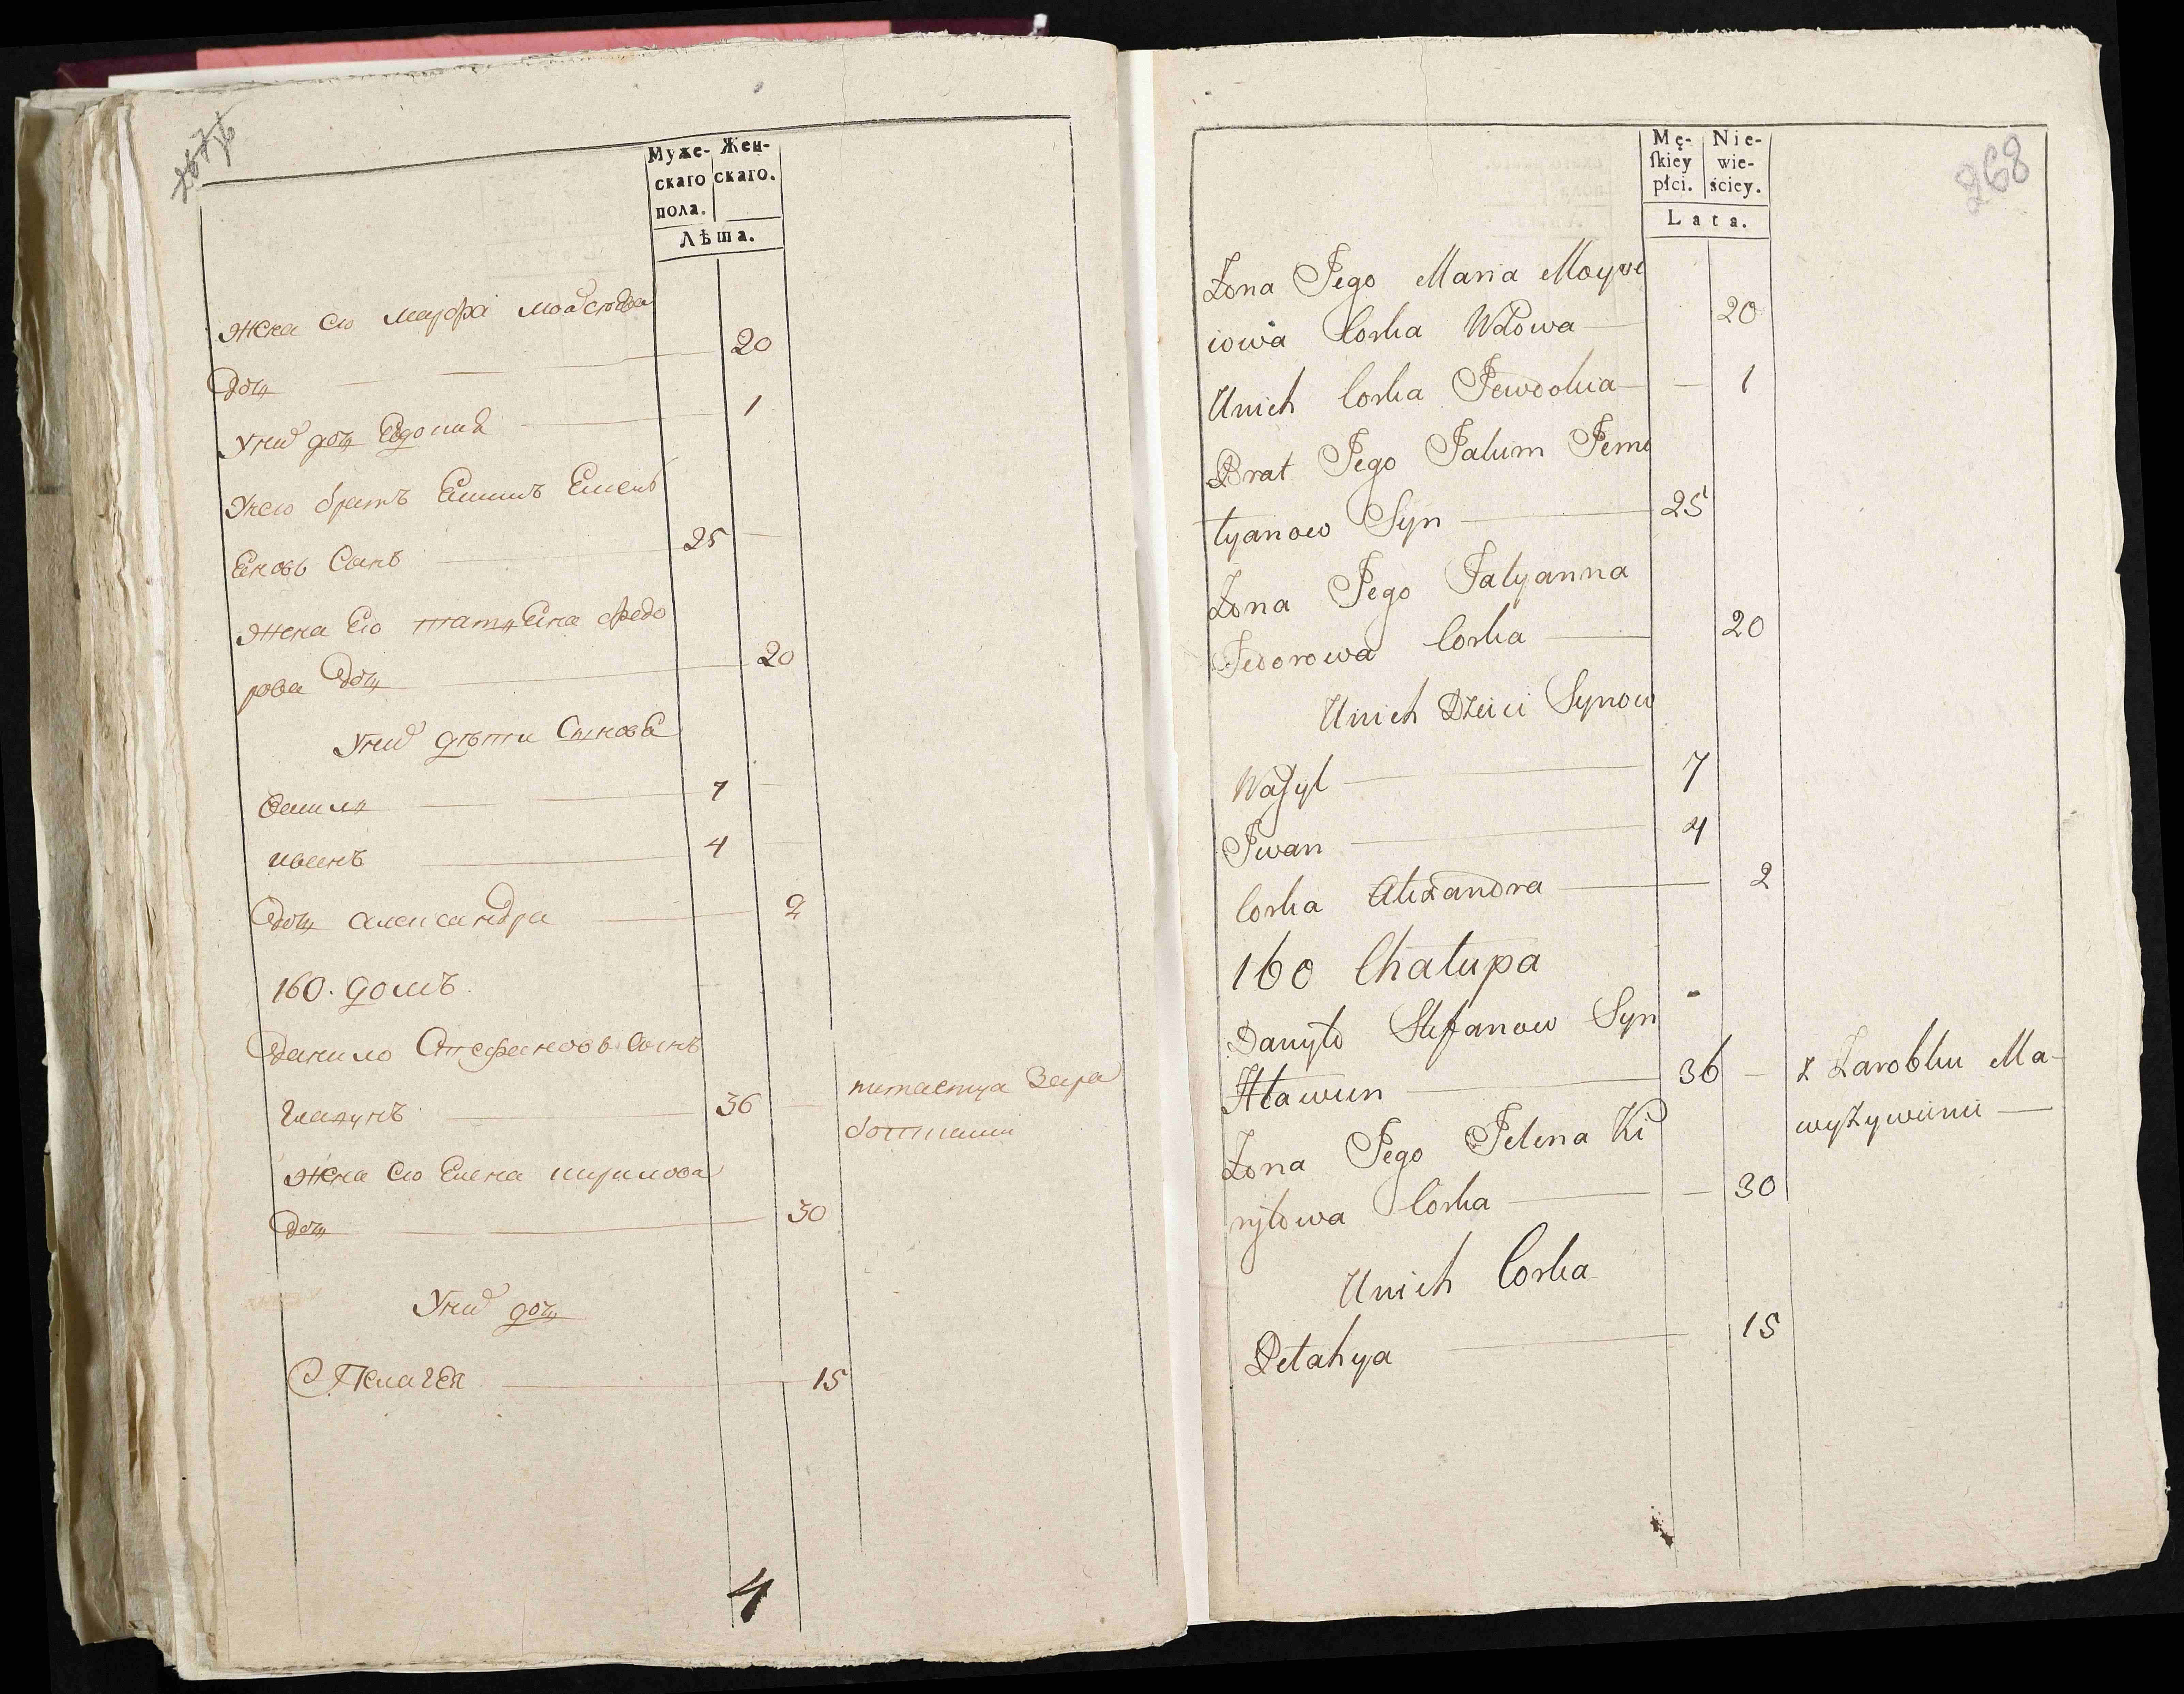 267
Муже-
скаго
пола.
Жен-
скаго.
Лѣта.
Жена его марфа моѵсѣева
дочь 20
у них дочь Евдокиа 1
У нею братъ Екимъ Емель
Еновъ Сынъ 25
Жена Его татьЕна федо
рова дочь 20
У них дѣти Сыновѣ
Василь 7
иванъ 4
дочь александра 2
160. домъ
данило Стефановъ Сынъ
36 питаетца Зара
ботками
жена его Елена кирилова
дочь 30
У них дочь
Пелагея 15
4
Mę-
ſkiey
płci.
Nie-
wie-
ściey.
Lata.
268
Zona Jego Maria Moyse
iowa Corka Wdowa 20
Unich Corka Jewdokia 1
Brat Jego Jakim Jeme
lyanow Syn 25
Zona Jego Tatyanna
Fedorowa Corka 20
Unich Dzieci Synow
Waſyl 7
Jwan 4
Corka Alexandra 2
160 Chałupa
Danyło Stefanow Syn
Hławun 36 z Zarobku Ma-
wyżywienie
Zona Jego Jelena Ki
ryłowa Corka 30
Unich Corka
Pelahya 15